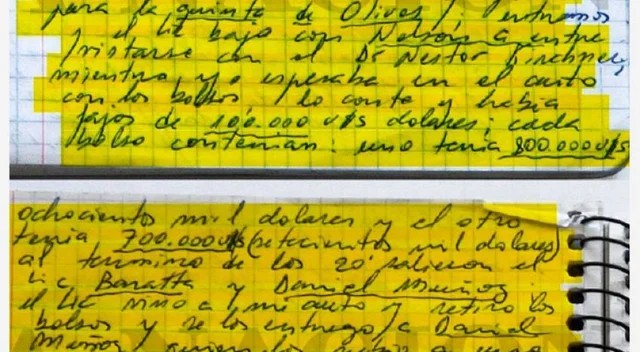 para la quinta de Olivos /: entramos
y el Lic bajo con Nelson a entre
/vistarse con el Dr Nestor Kirchner,
mientras yo esperaba en el auto
con los bolsos, lo conte y habia
fajos de 100.000 u/s dolares; cada
/bolso contenian: uno tenia 800.000 u/s
ochocientos mil dolares y el otro
tenia 700.000 u/s (setecientos mil dolares)
al termino de los 20' salieron el
Lic Baratta y Daniel Muñoz
el Lic vino a mi auto y retiro los
bolsos y se los entrego a Daniel
Muñoz quien los